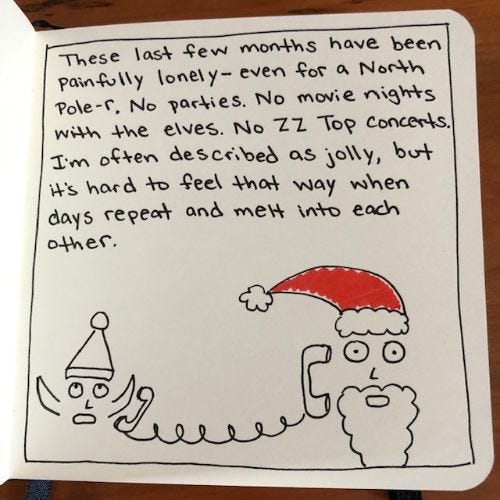 These last few months have been
painfully lonely - even for a North
Pole-r. No parties. No movie nights
with the elves. No ZZ Top concerts.
I'm often described as jolly, but
it's hard to feel that way when
days repeat and melt into each
other.